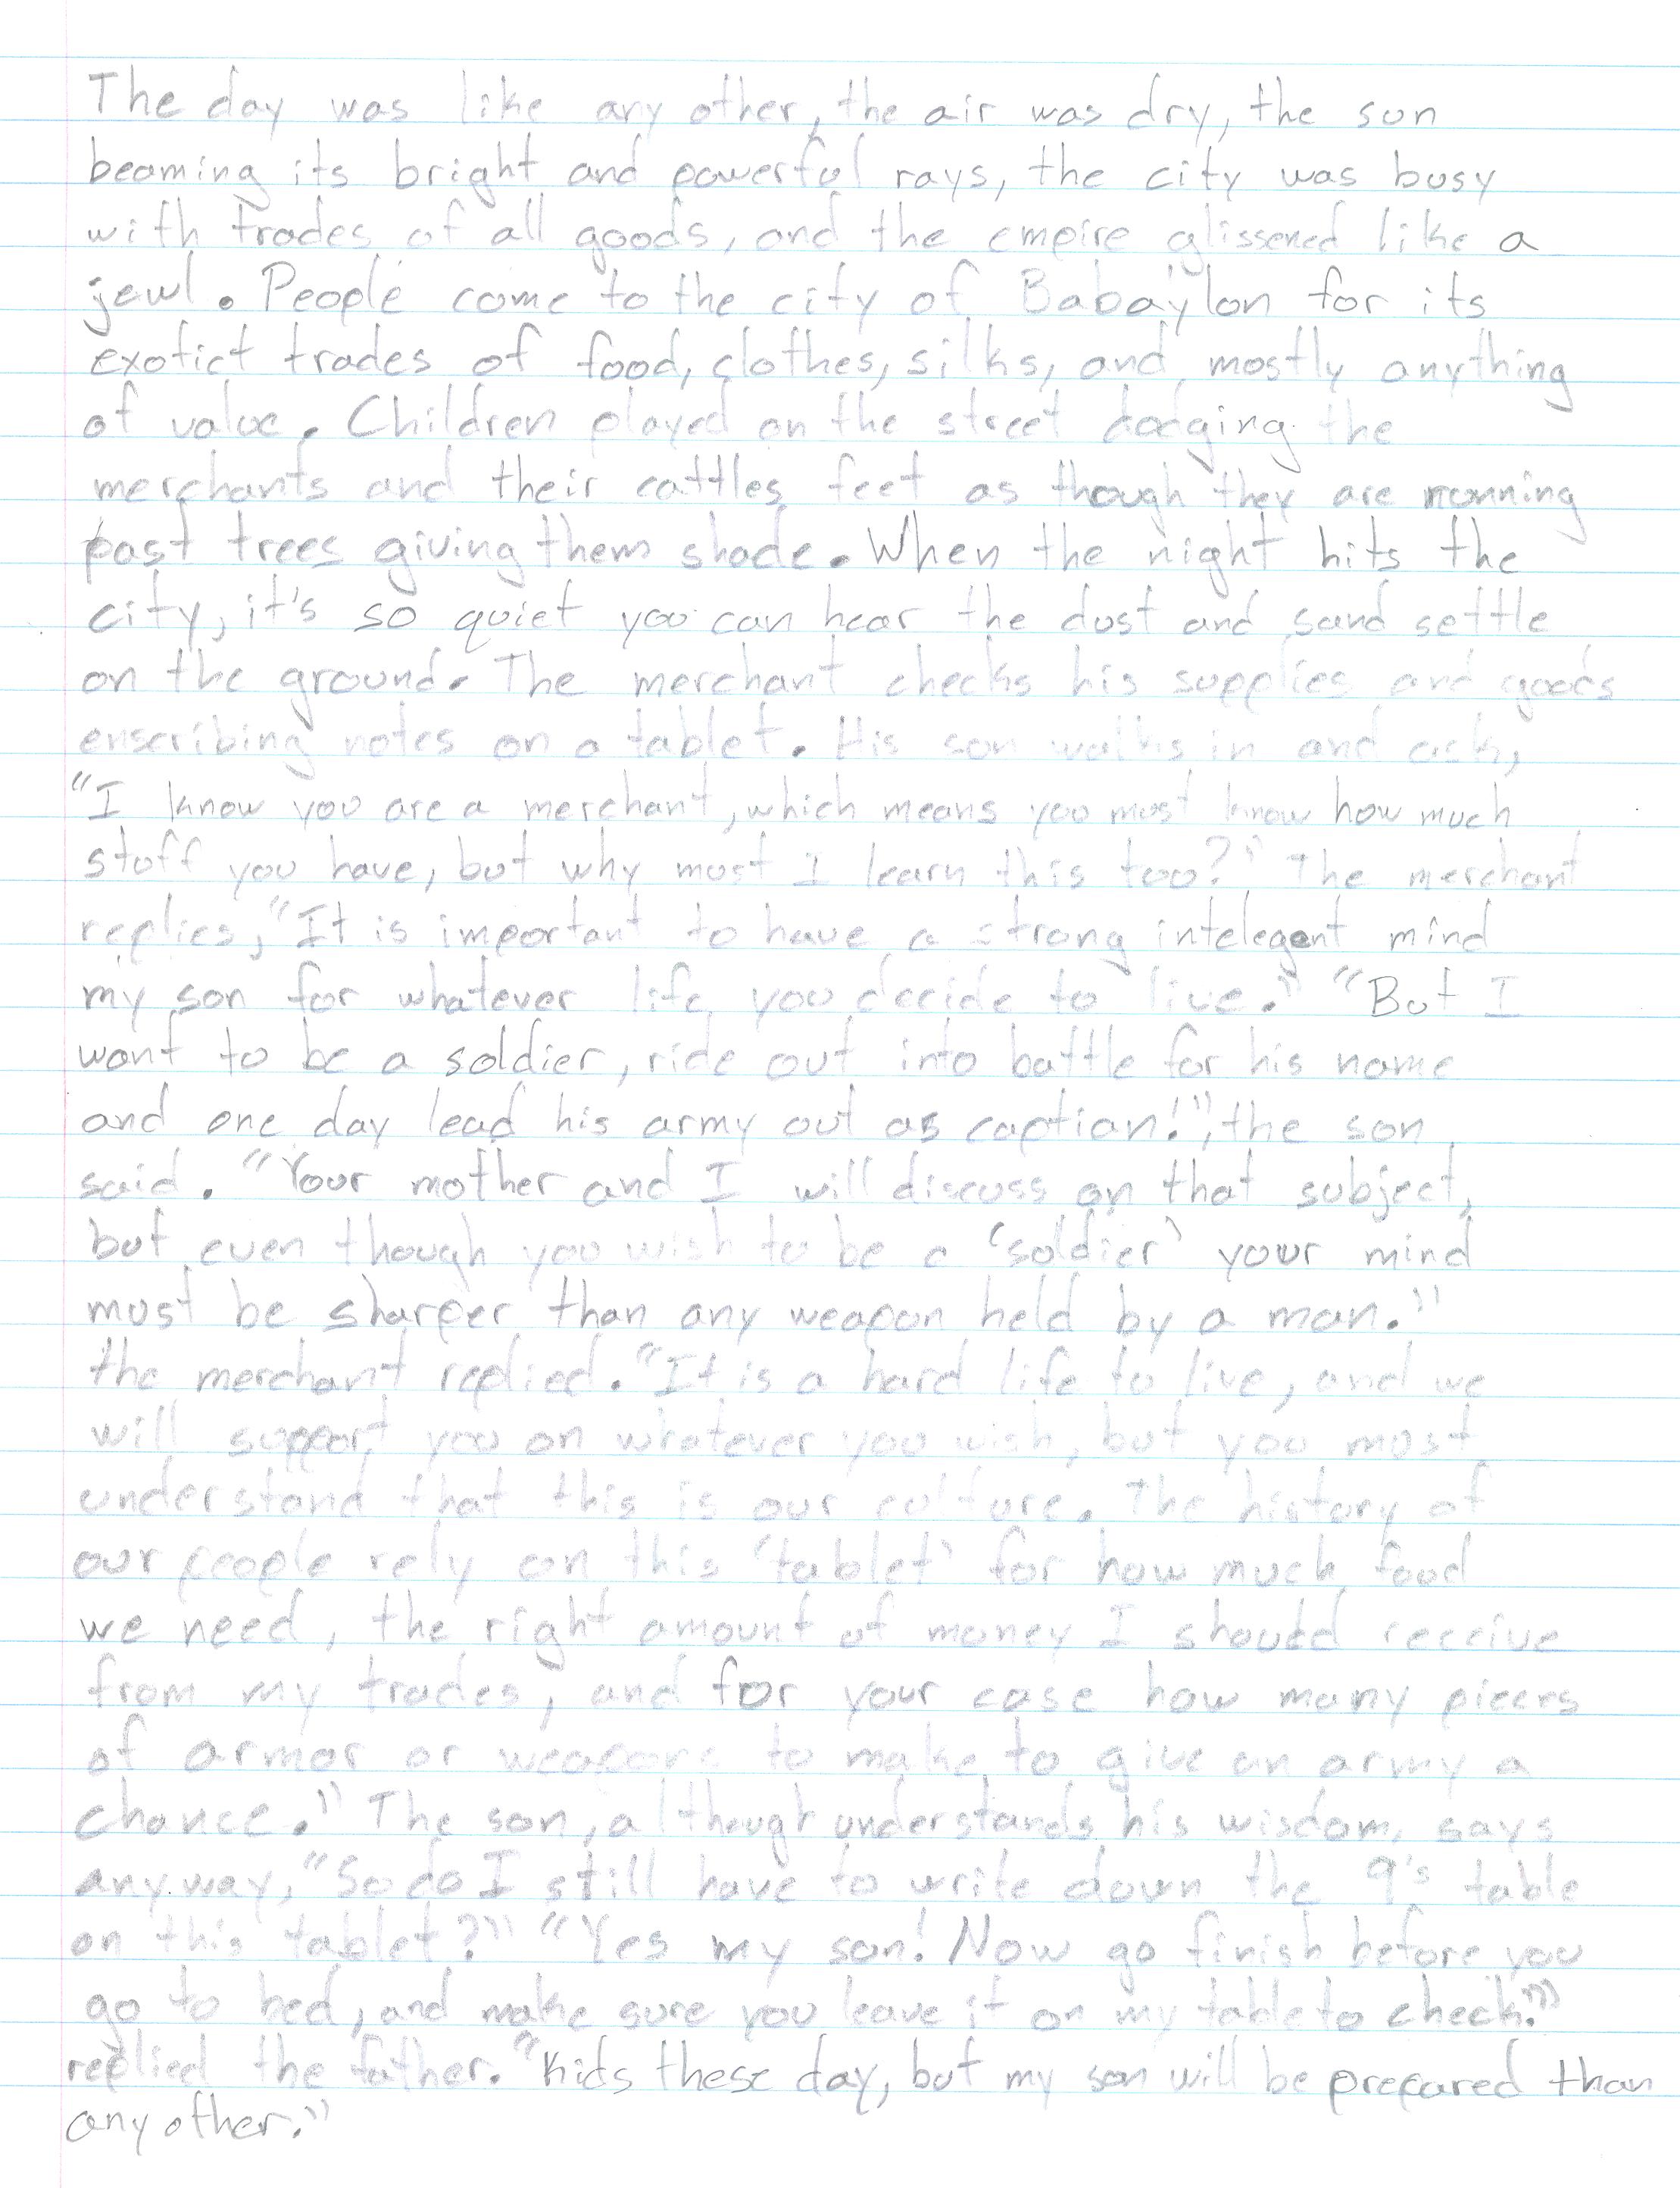 The day was like any other, the air was dry, the sun
beaming its bright and powerful rays, the city was busy
with trades of all goods, and the empire glissened like a
jewl. People come to the city of Babaylon for its
exotict trades of food, clothes, silks, and mostly anything
of value. Children played on the street dodging the
merchants and their cattles feet as though they are running
past trees giving them shade. When the night hits the
city, it's so quiet you can hear the dust and sand settle
on the ground. The merchant checks his supplies and goods
enscribing notes on a tablet. His son walks in and ask,
"I know you are a merchant, which means you must know how much
stuff you have, but why must I learn this too?" The merchant
replies, "It is important to have a strong intelegent mind
my son for whatever life you decide to live." "But I
want to be a soldier, ride out into battle for his name
and one day lead his army out as caption!", the son
said. "Your mother and I will discuss on that subject,
but even though you wish to be a 'soldier' your mind
must be sharper than any weapon held by a man."
the merchant replied. "It is a hard life to live, and we
will support you on whatever you wish, but you must
understand that this is our culture. The history of
our people rely on this 'tablet' for how much food
we need, the right amount of money I should receive
from my trades, and for your case how many pieces
of armor or weapons to make to give an army a
chance." The son, although understands his wisdom, says
anyway, "So do I still have to write down the 9's table
on this tablet?" "Yes my son! Now go finish before you
go to bed, and make sure you leave it on my table to check."
replied the father. "Kids these day, but my son will be prepared than
any other."